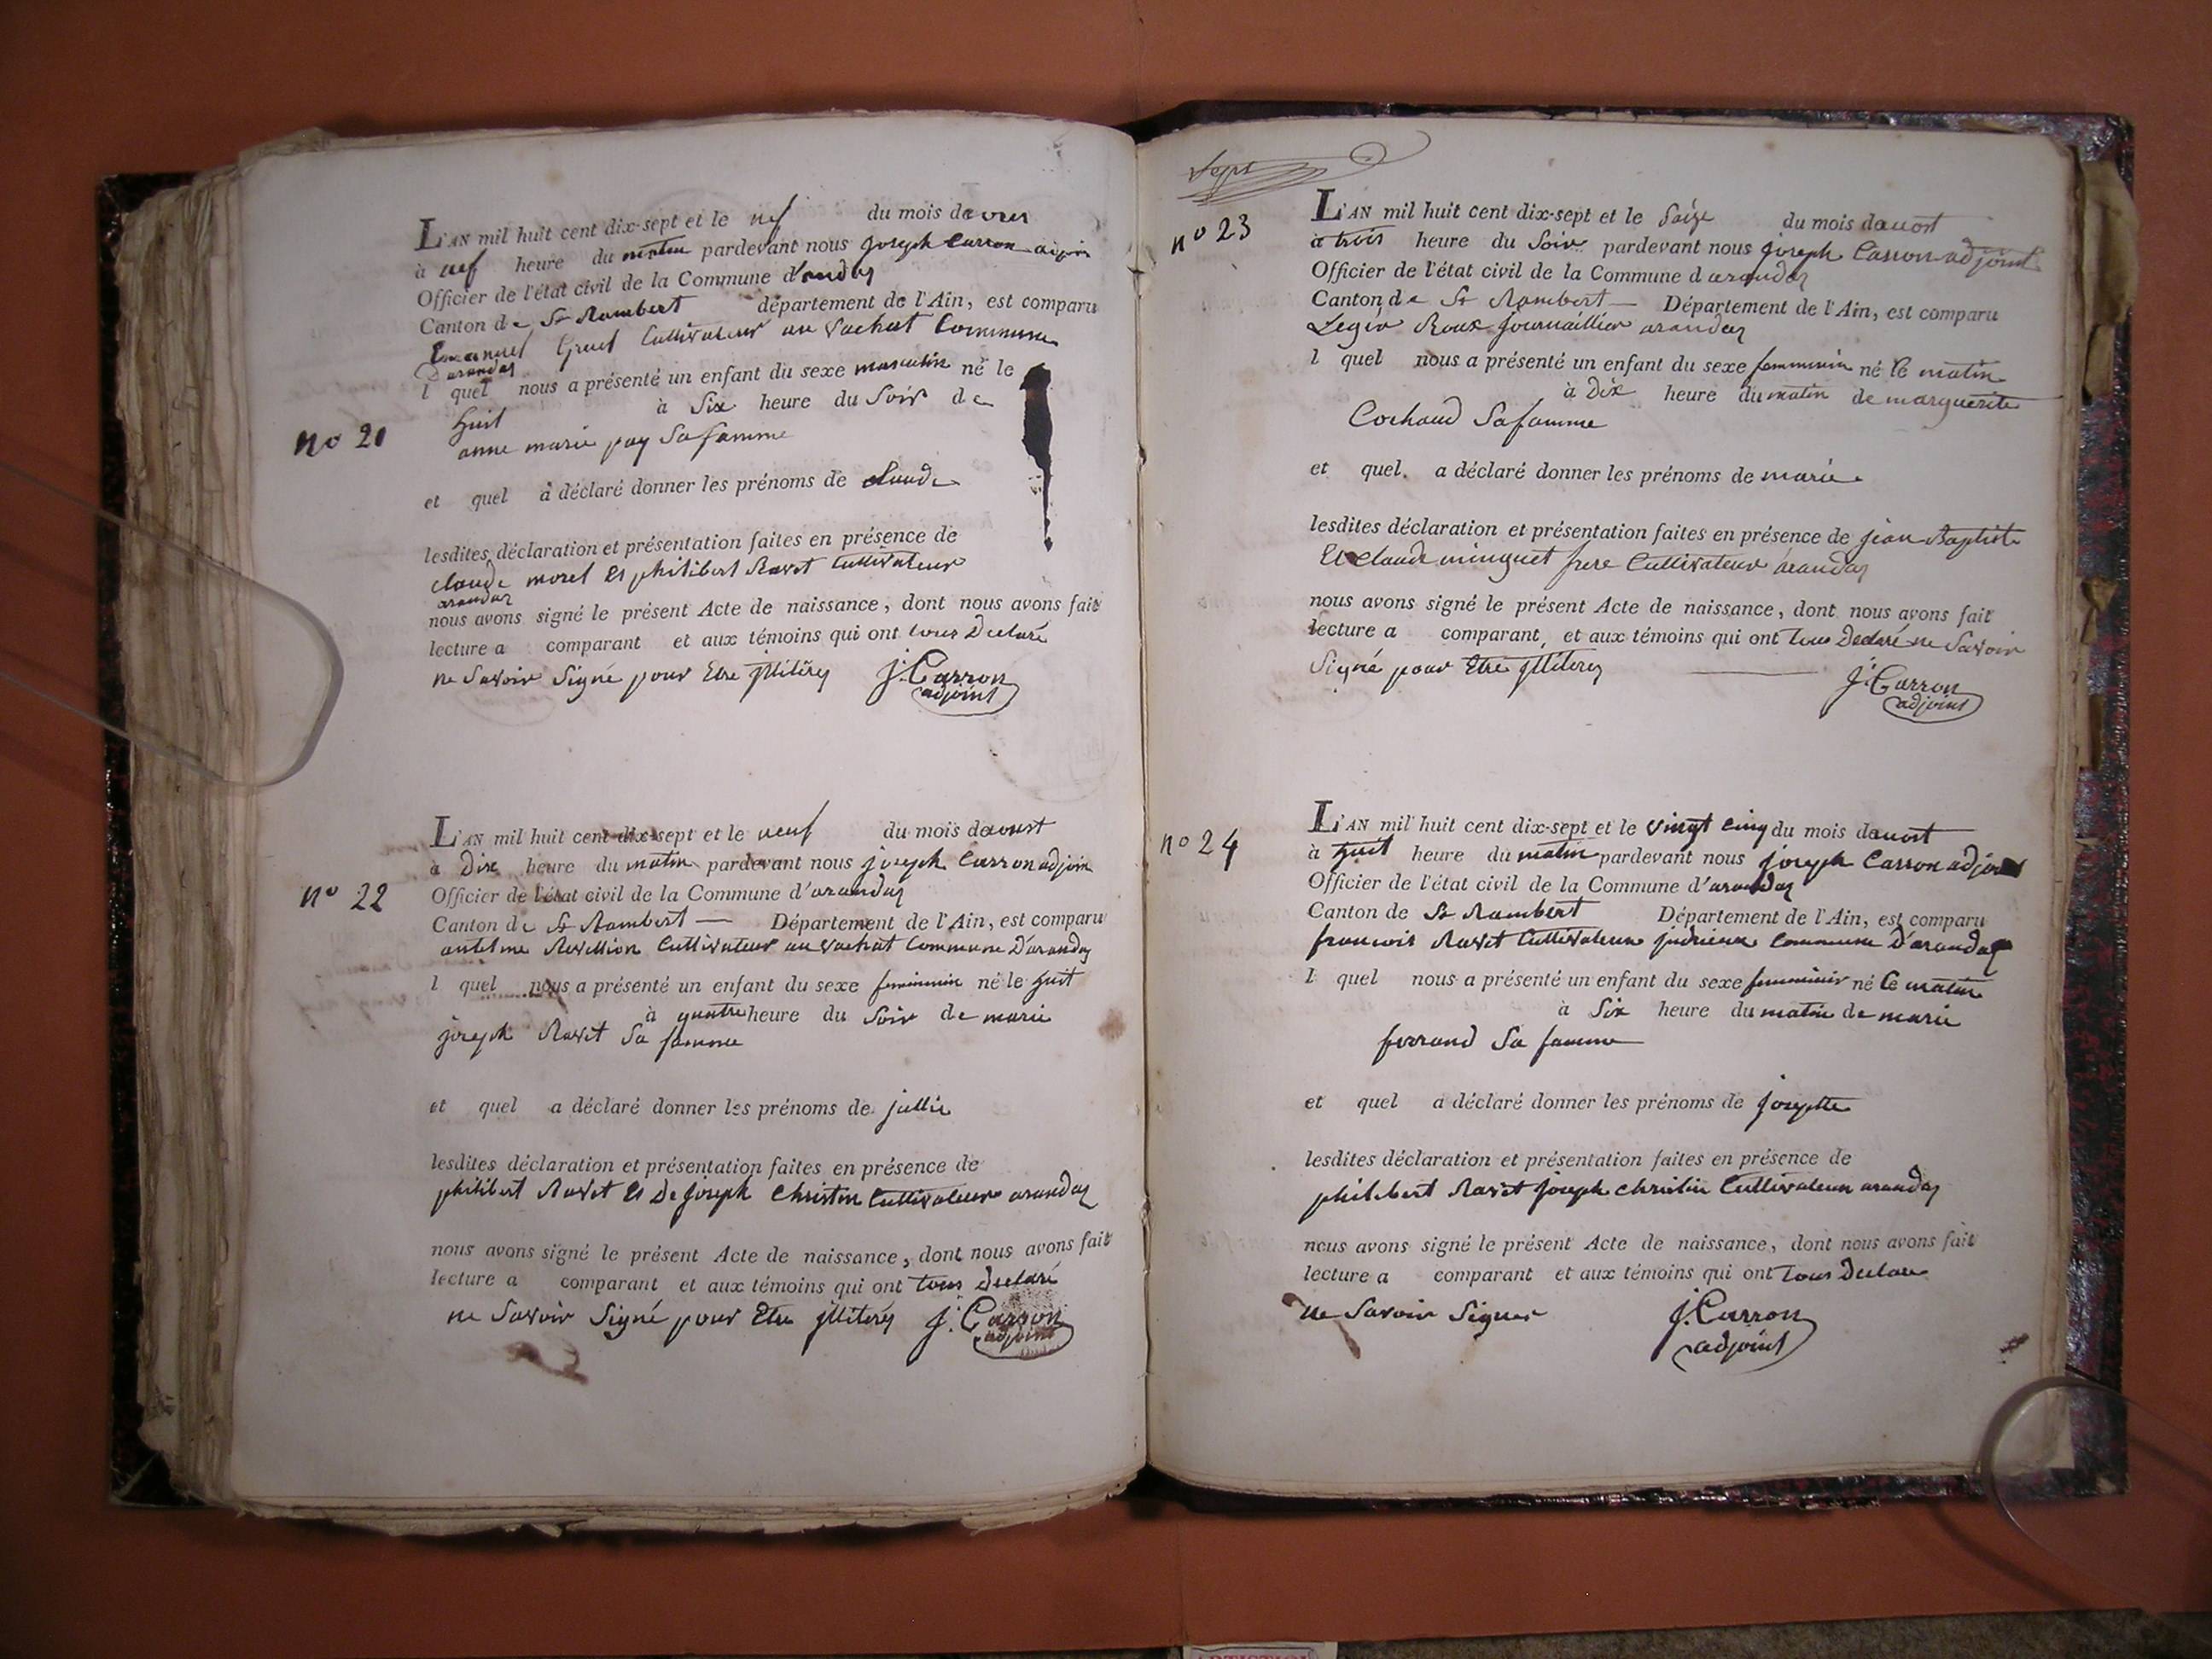 L'AN mil huit cent dix-sept et le nef du mois de
à nef heure du matin pardevant nous joseph Carron
Officier de l'état civil de la Commune d'
Canton de St Rambert département de l'Ain, est comparu
Emanuel Cultivateur au vachat Commune
D'arandas
l quel nous a présenté un enfant du sexe masculin né le
huit à Six heure du Soir de
no 21
anne marie pay Sa famme
et quel a déclaré donner les prénoms de claude
lesdites déclaration et présentation faites en présence de
claude morel Et philibert Ravet Cultivateur
arandas
nous avons signé le présent Acte de naissance, dont nous avons fait
lecture a comparant et aux témoins qui ont tous Declaré
ne Savoir Signé pour Etre jlliterés J. Carron
adjoint
L'AN mil huit cent dix-sept et le neuf du mois daoust
à Dix heure du matin pardevant nous joseph Carron adjoin
no 22
Officier de l'état civil de la Commune d'arandas
Canton de St Rambert — Département de l'Ain, est comparu
antelme Revillion Cultivateur au vachat Commune D'arandas
l quel nous a présenté un enfant du sexe feminin né le huit
à quatre heure du Soir de marie
joseph Ravet Sa famme
et quel a déclaré donner les prénoms de jullie
lesdites déclaration et présentation faites en présence de
philibert Ravet Et De joseph Christin Cultivateur arandas
nous avons signé le présent Acte de naissance, dont nous avons fait
lecture a comparant et aux témoins qui ont tous Declaré
ne Savoir Signé pour Etre jlliterés J. Carron
adjoint
Sept
no 23
L'AN mil huit cent dix-sept et le Saize du mois dauost
à trois heure du Soir pardevant nous joseph Carron adjoint
Officier de l'état civil de la Commune d arandas
Canton de St Rambert — Département de l'Ain, est comparu
Legér Roux journaillier arandas
l quel nous a présenté un enfant du sexe femminin né le matin
à Dix heure du matin de marguerite
Cochaud Sa famme
et quel a déclaré donner les prénoms de marie
lesdites déclaration et présentation faites en présence de jean Baptiste
Et claude minguet frere Cultivateur arandas
nous avons signé le présent Acte de naissance, dont nous avons fait
lecture a comparant, et aux témoins qui ont tous Declaré ne Savoir
Signé pour Etre jlliterés
J. Carron
adjoint
no 24
L'AN mil huit cent dix-sept et le vingt cinq du mois dauost
à huit heure du matin pardevant nous joseph Carron
Officier de l'état civil de la Commune d'arandas
Canton de St Rambert Département de l'Ain, est comparu
francois Ravet Cultivateur Commune D'arandas
l quel nous a présenté un enfant du sexe femminin né le matin
à Six heure du matin de marie
ferrand Sa famme
et quel a déclaré donner les prénoms de josepte
lesdites déclaration et présentation faites en présence de
philibert Ravet joseph christin Cultivateur arandas
nous avons signé le présent Acte de naissance, dont nous avons fait
lecture a comparant et aux témoins qui ont tous Declare
ne Savoir Signer J. Carron
adjoint